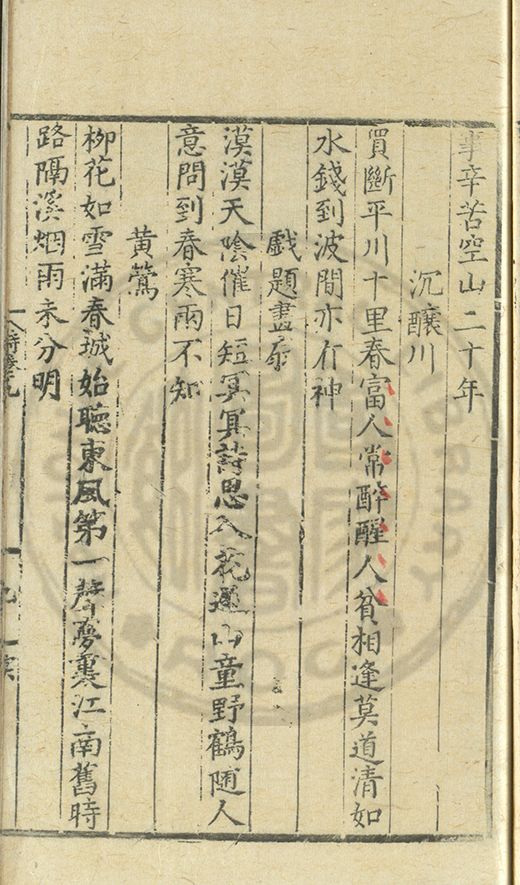 事辛苦空山二十年
沉釀川
買斷平川十里春富人常醉醒人貧相逢莫道清如
水錢到波間亦有神
戲題畫扇
漠漠天陰催日短冥冥詩思入花遲山童野鶴随人
意問到春寒雨不知
黃鶯
柳花如雪滿春城始聴東風第一聲夢裏江南舊時
路隔溪烟雨未分明